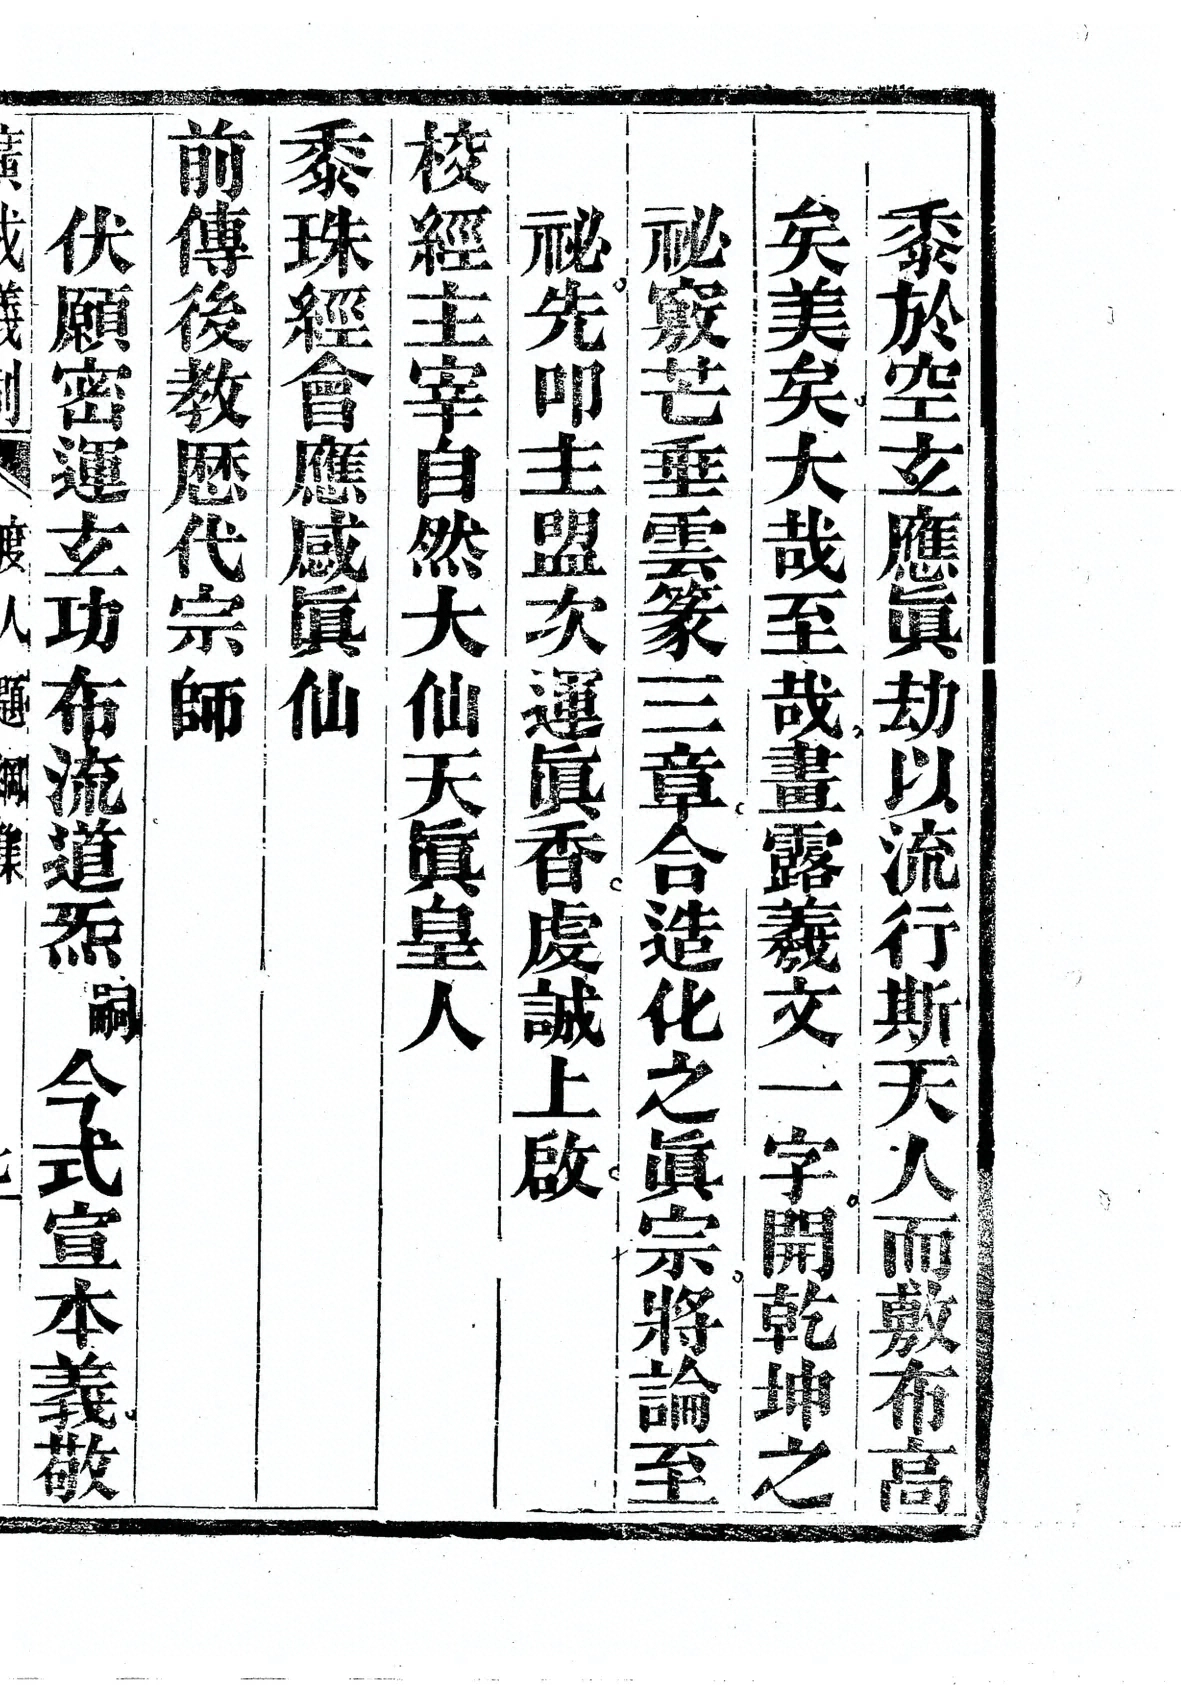 黍於空玄應眞劫以流行斯天人而敷布高
矣美矣大哉至哉畫露羲文一字開乾坤之
祕竅芒垂雲篆三章合造化之眞宗將論至
祕先叩主盟次運眞香虔誠上啟
校經主宰自然大仙天眞皇人
黍珠經會應感眞仙
前傳後教歷代宗師
伏願密運玄功布流道炁嗣今式宣本義敬
廣成義制 度人題綱集